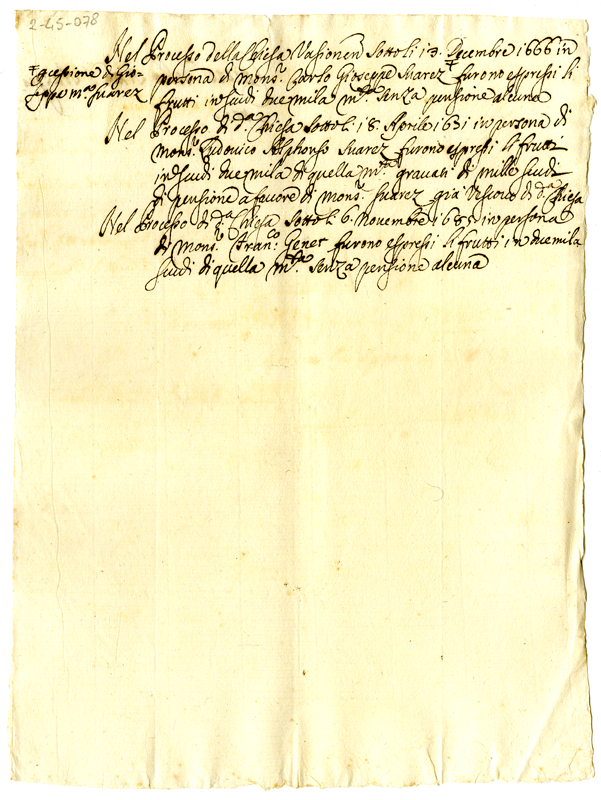 2-45-078
Nel Processo della Chiesa Vasionen Sotto li 13. Decembre 1666 in
persona di Mons.r Carlo Gioseppe Suarez ‡ furono espressi li
‡ cessione di Gio-
seppe m.a Suarez
frutti in scudi duemila m.ta senza pensione alcuna
Nel Processo di d.a Chiesa Sotto li 18. Aprile 1671 in persona di
Mons.r Ludovico Alphonso Suarez furono espressi li frutti
in scudi duemila di quella m.ta gravati di mille scudi
di pensione a favore di Mons.r Suarez già Vescovo di d.a Chiesa
Nel Processo di d.a Chiesa Sotto li 6. Novembre 1685 in persona
di Mons.r Fran.co Genet furono espressi li frutti in duemila
scudi di quella m.ta senza pensione alcuna